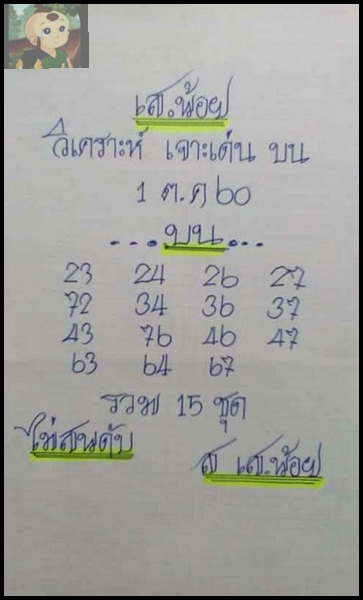 เส.น้อย
วิเคราะห์ เจาะเด่น บน
1 ต.ค 60
...บน...
23 24 26 27
72 34 36 37
43 76 46 47
63 64 67
รวม 15 ชุด
ไม่สนดับ
ส เส.น้อย